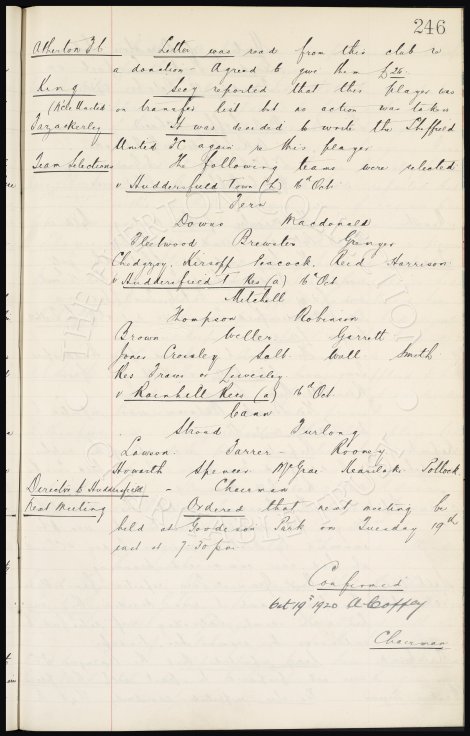 246
Atherton F.C. Letter was read from this club re
a donation - Agreed to give them £26.
King Secy reported that this player was
(Rose United on transfer list but no action was taken
Fazackerley It was decided to wrote the Sheffield
United FC again re this player
Team Selections The following teams were selected
v Huddersfield Town (h) 16th Oct.
Fern
Downs Macdonald
Fleetwood Brewster Grenyer
Chedgzoy, Kirsopp Peacock, Reid Harrison
v Huddersfield T Res (a) 16th Oct
Mitchell
Thompson Robinson
Brown Weller Garrett
Jones Crossley Salt Wall Smith
Res Travis or Livesley
v Rainhill Rees (a) 16th Oct.
Cann
Stroud Furlong
Lawson. Farrer. Rooney
Howarth Spencer McGrae Pollock
Director to Huddersfield - Chairman
Next Meeting Ordered that next meeting be
held at Goodison Park on Tuesday 19th
inst at 7-30 pm.
Confirmed
Oct 19th 1920 A Coffey
Chairman